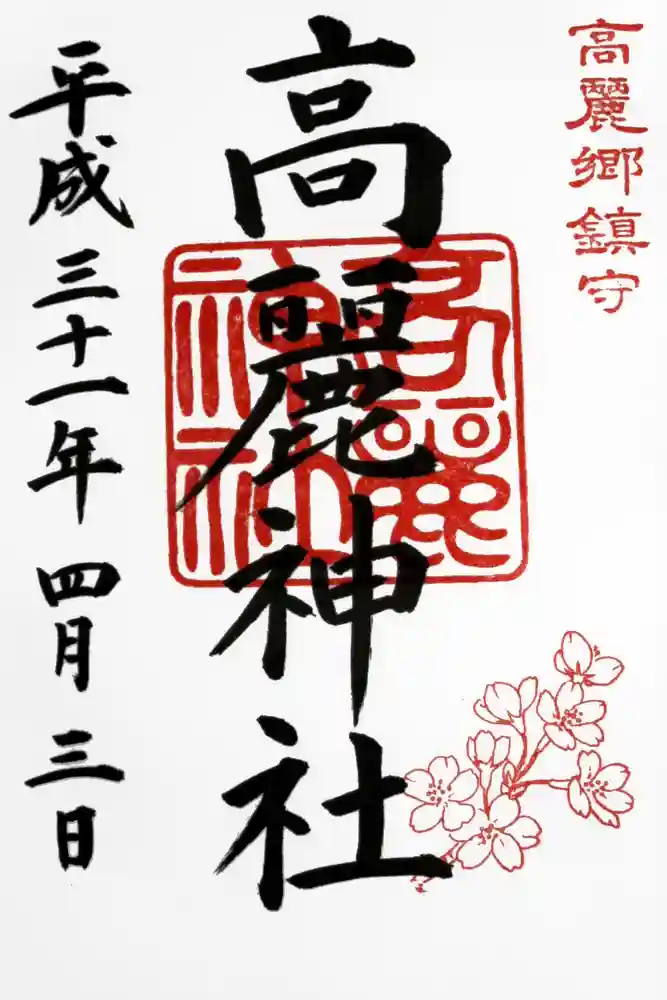 高麗郷鎮守
高麗神社
高麗神社
平成三十一年 四月 三日